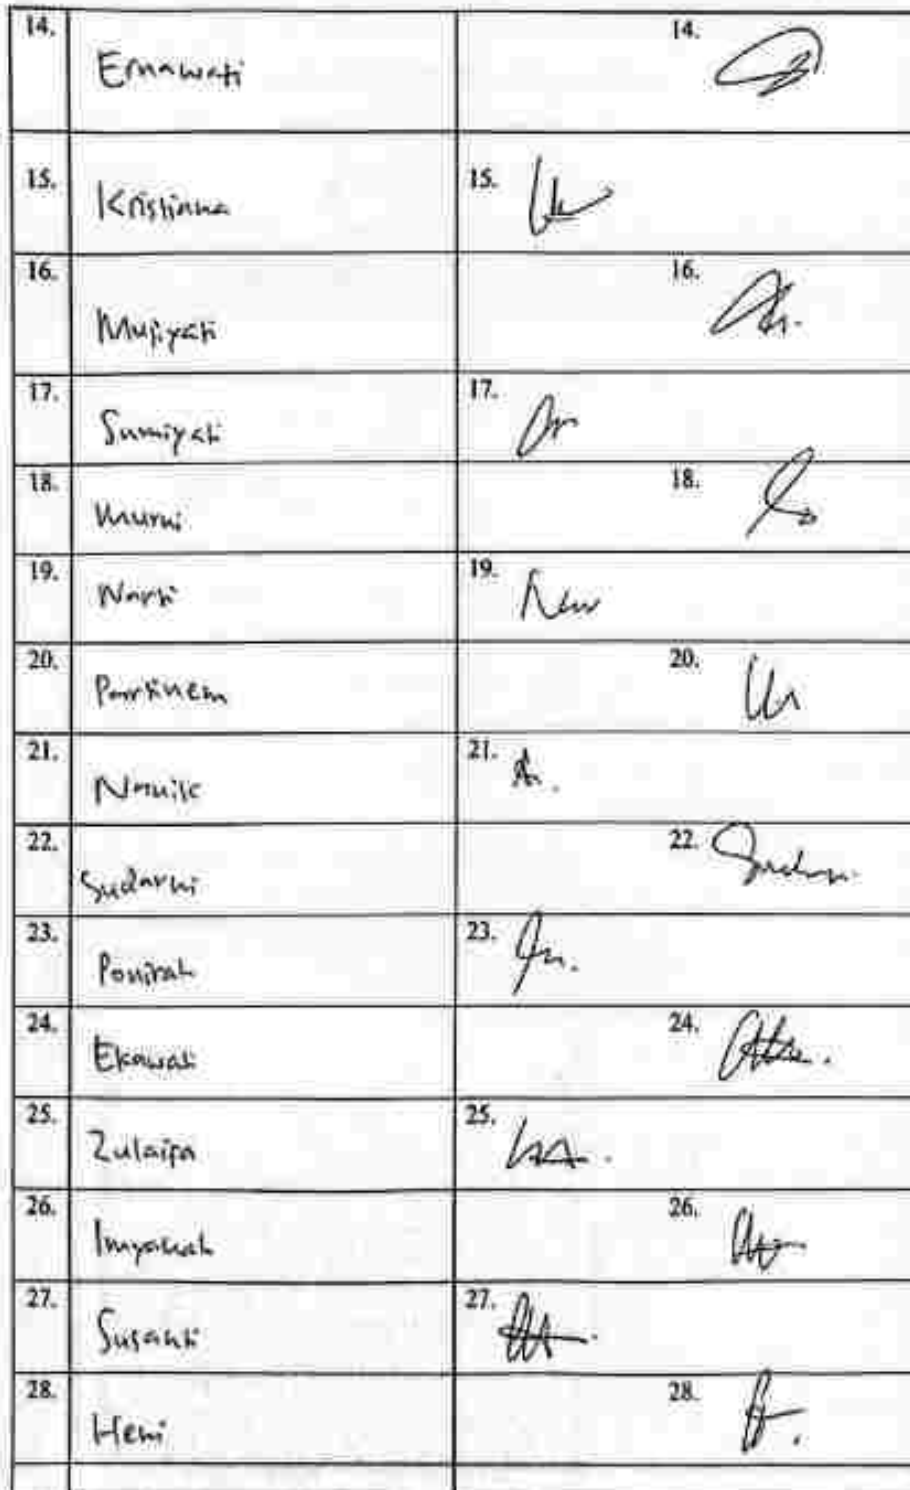 14. Ernawati 14.
15. Kristiana 15.
16. Mujiyati 16.
17. Sumiyati 17.
18. Murni 18.
19. Narti 19.
20. Partinem 20.
21. 21.
22. Sudarni 22.
23. Ponirah 23.
24. Ekawati 24.
25. Zulaipa 25.
26. 26.
27. Susanti 27.
28. Heni 28.